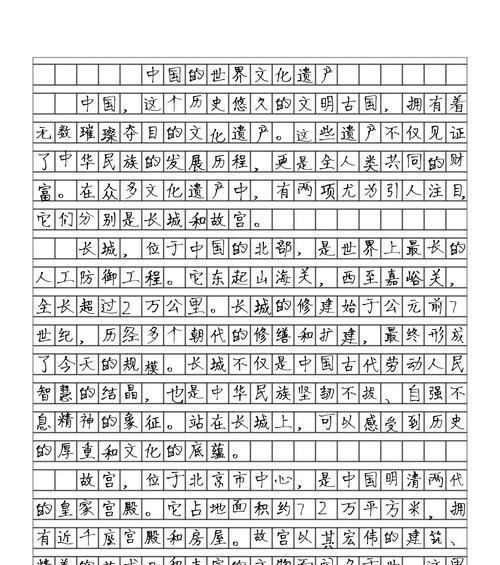 中国的世界文化遗产
中国，这个历史悠久的文明古国，拥有着
无数璀璨夺目的文化遗产。这些遗产不仅见证
了中华民族的发展历程，更是全人类共同的财
富。在众多文化遗产中，有两项尤为引人注目，
它们分别是长城和故宫。
长城，位于中国的北部，是世界上最长的
人工防御工程。它东起山海关，西至嘉峪关，
全长超过2万公里。长城的修建始于公元前7
世纪，历经多个朝代的修缮和扩建，最终形成
了今天的规模。长城不仅是中国古代劳动人民
智慧的结晶，也是中华民族坚韧不拔、自强不
息精神的象征。站在长城上，可以感受到历史
的厚重和文化的底蕴。
故宫，位于北京市中心，是中国明清两代
的皇家宫殿。它占地面积约72万平方米，拥
有近千座宫殿和房屋。故宫以其宏伟的建筑、